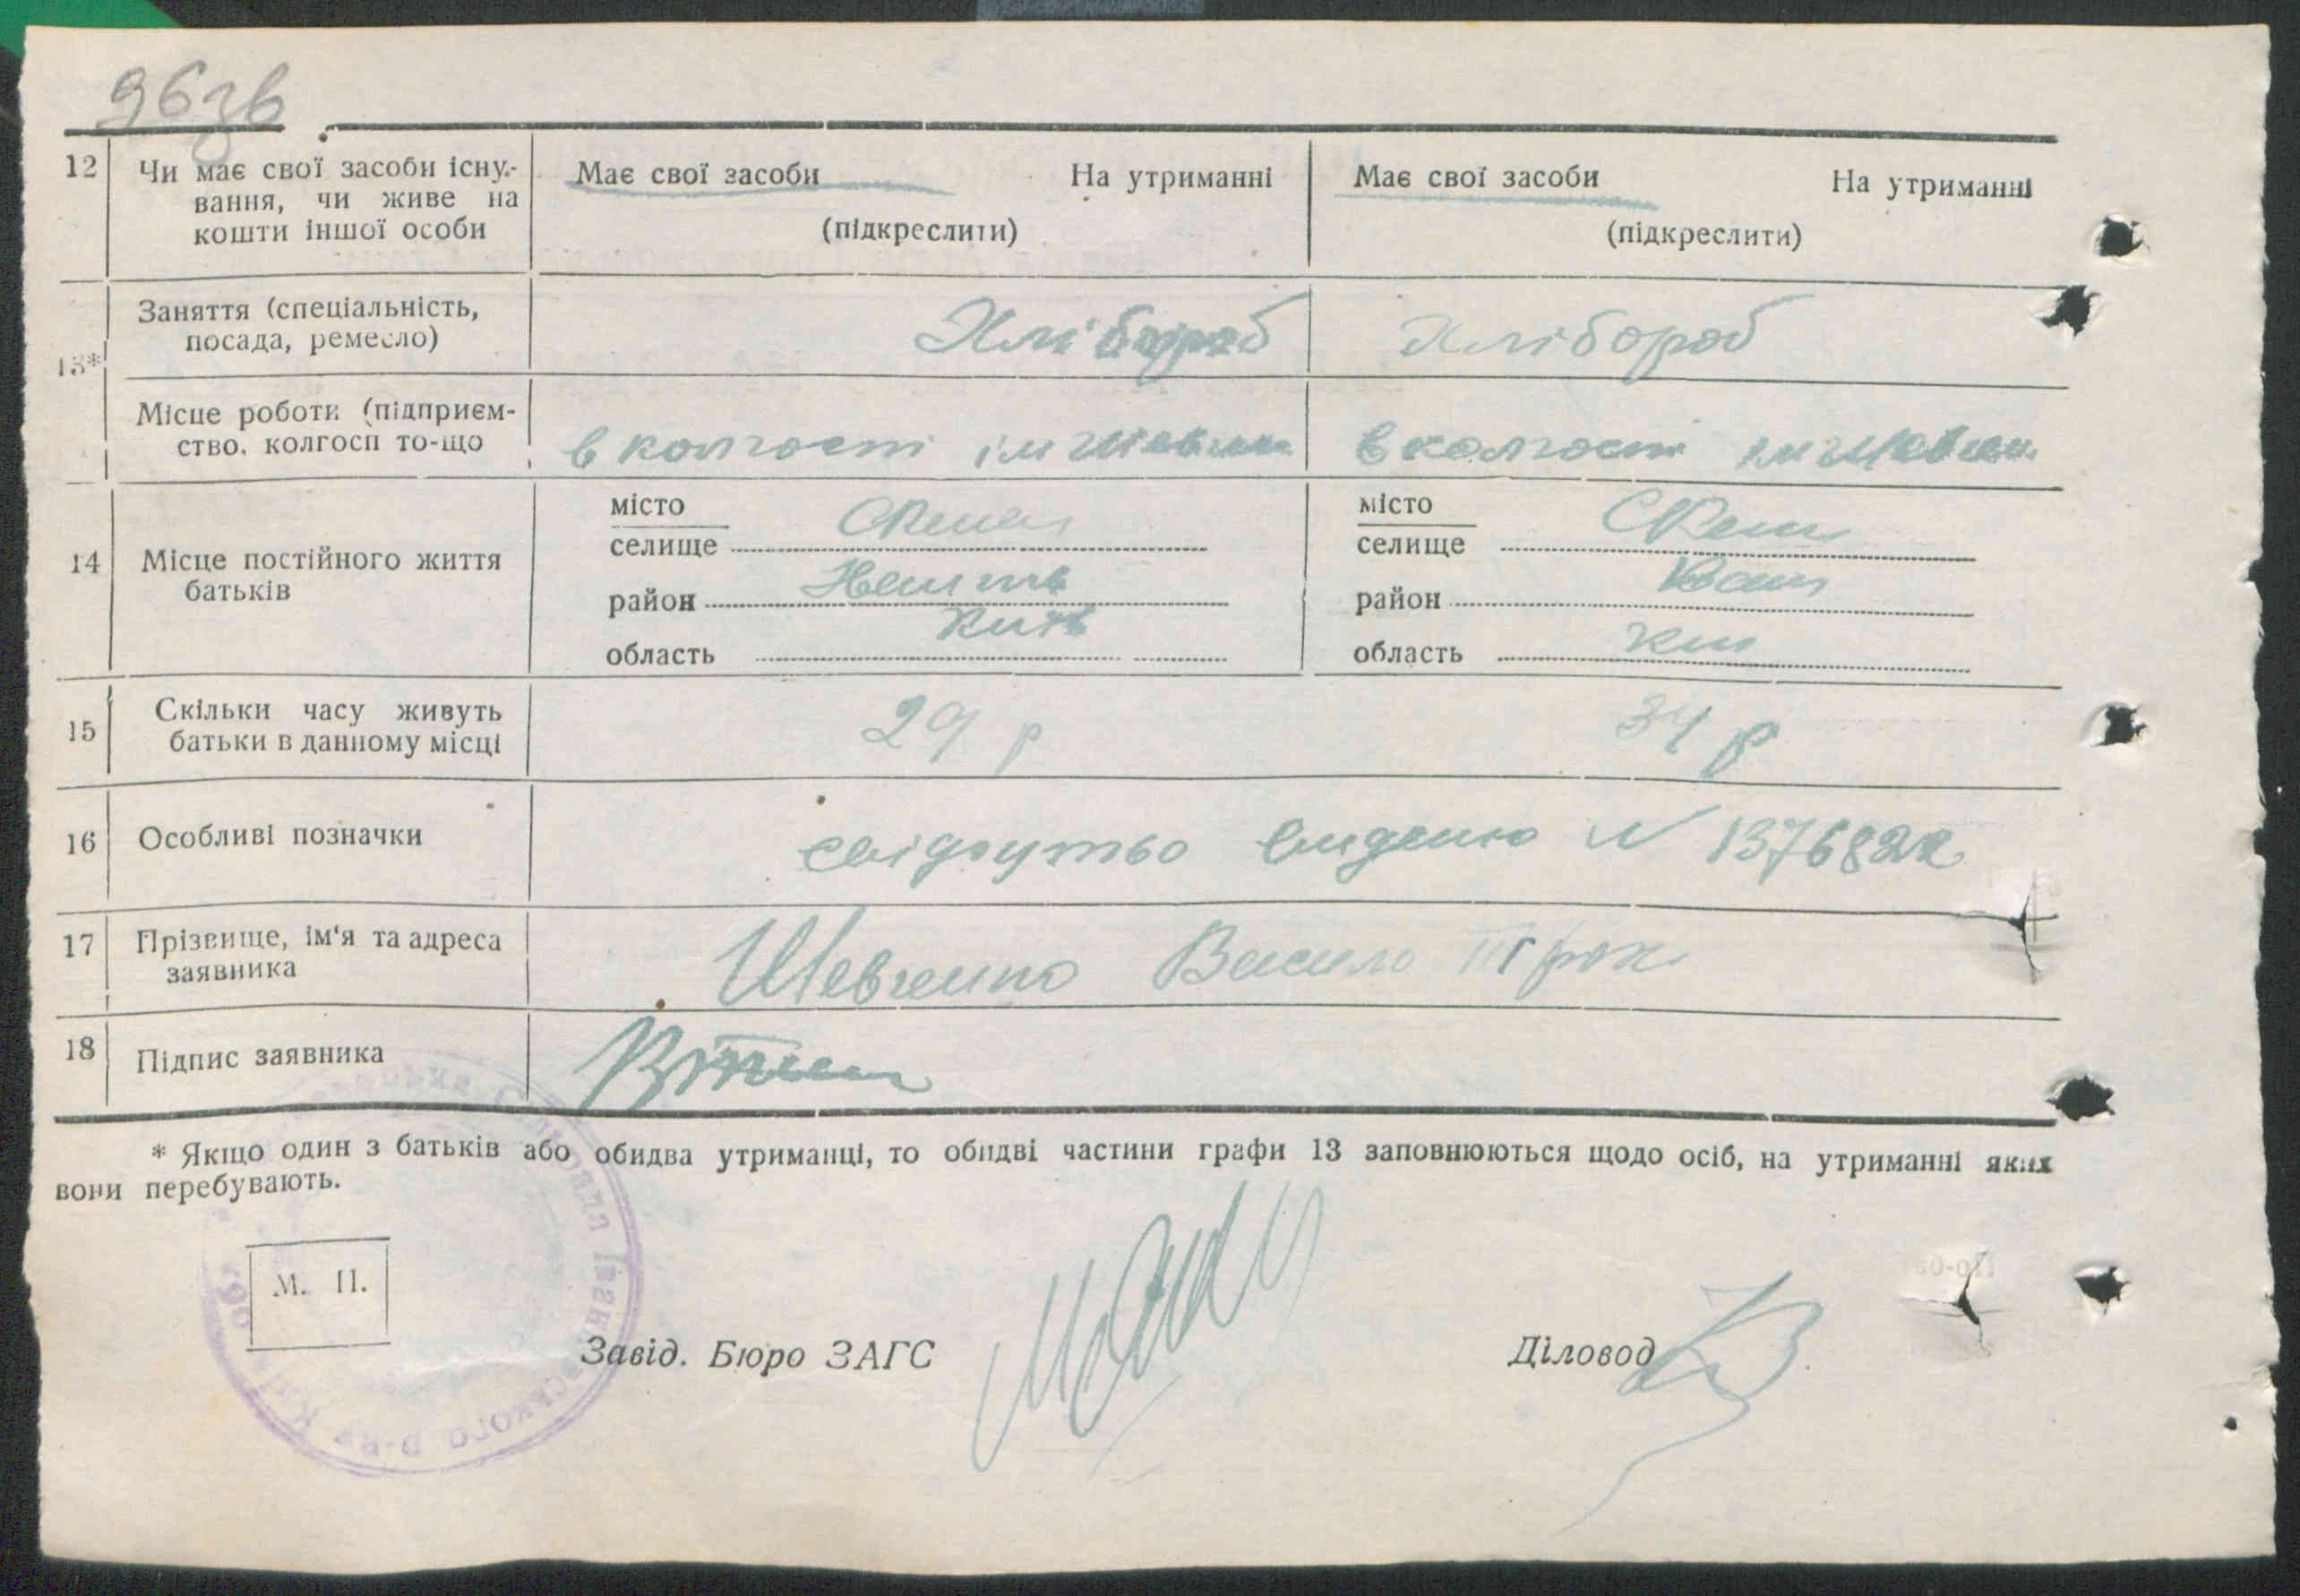 96зв
12 Чи має свої засоби існу- Має свої засоби На утриманні Має свої засоби На утриманні
вання, чи живе на
кошти іншої особи (підкреслити) (підкреслити)
13* Заняття (спеціальність, Хлібороб Хлібороб
посада, ремесло)
Місце роботи (підприєм-
ство, колгосп то-що в колгоспі ім в колгоспі ім
місто місто
селище селище
14 Місце постійного життя
батьків
район район
область область
15 Скільки часу живуть 29 р 34 р
батьки в данному місці
16 Особливі позначки свідоцтво видано N 137682
17 Прізвище, ім'я та адреса Шевченко Василь
заявника
18 Підпис заявника
* Якщо один з батьків або обидва утриманці, то обидві частини графи 13 заповнюються щодо осіб, на утриманні яких
вони перебувають.
М. П.
Завід. Бюро ЗАГС Діловод